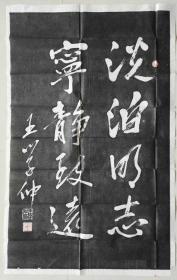 淡泊明志
寧静致遠
王學仲